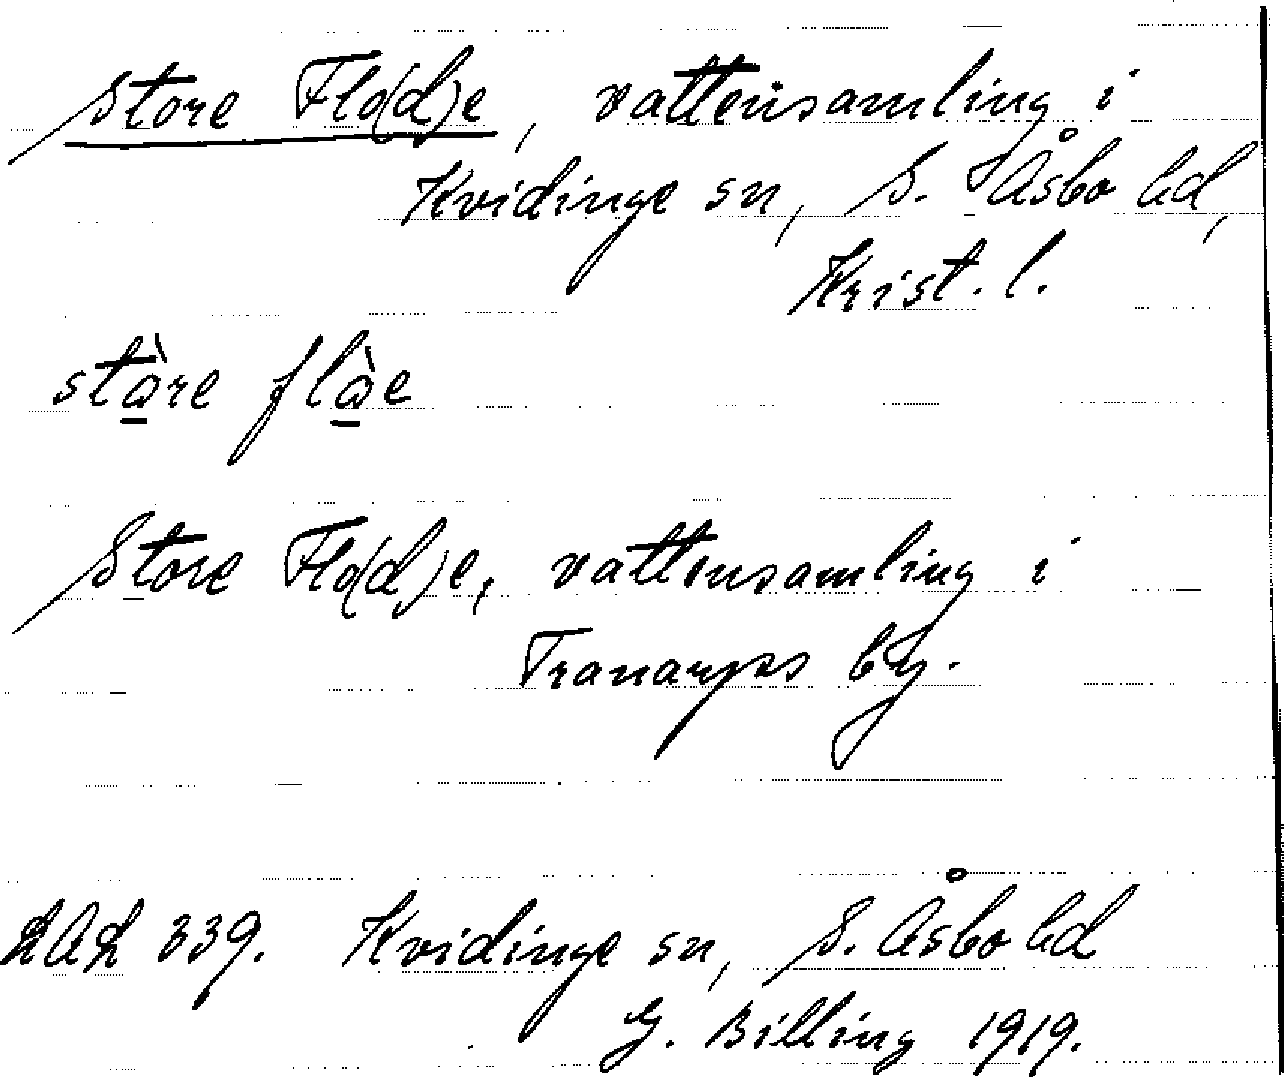 Store Flo(d)e, vattensamling i
Kvidinge sn, S. Åsbo hd,
Krist. l.
stå̱̀re flå̱̀e
Store Flo(d)e, vattensamling i
Tranarps by.
LAL 339. Kvidinge sn, S. Åsbo hd
G. Billing 1919.